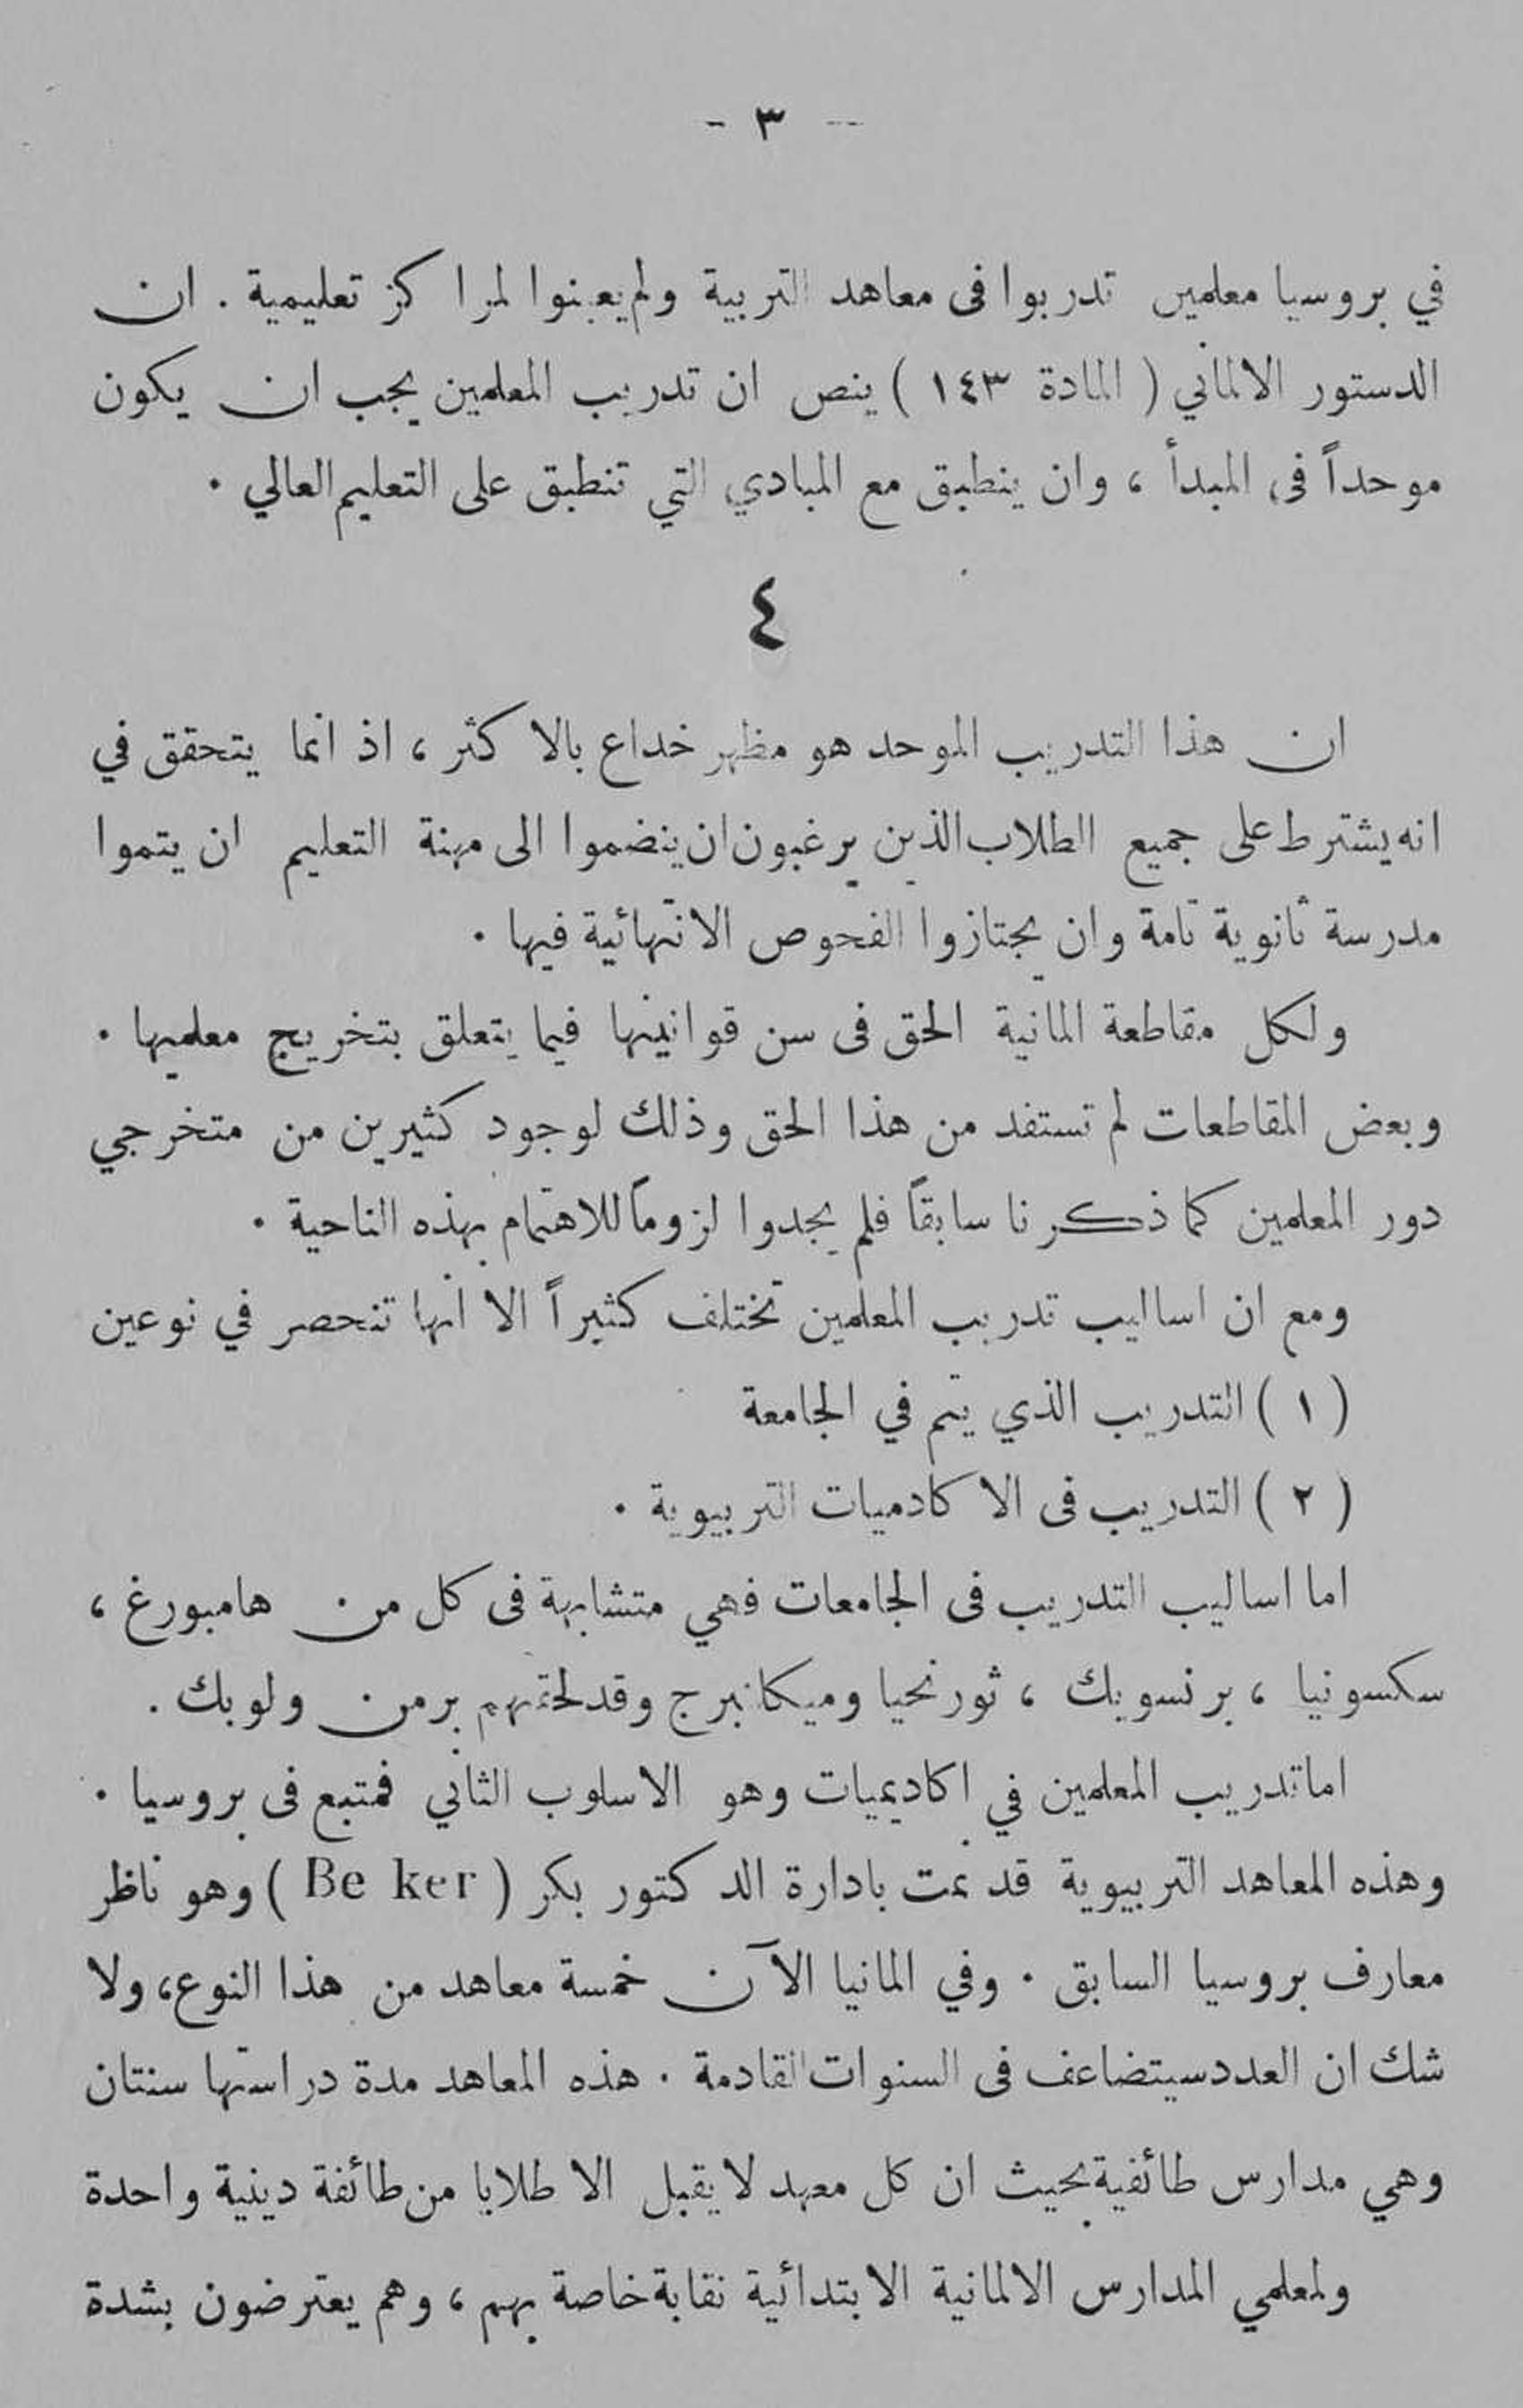 - ٣ -
في بروسيا معلمين تدربوا فى معاهد التربية ولم يعينوا لمرا كز تعليمية . ان
الدستور الالماني ( المادة ١٤٣ ) ينص ان تدريب المعلمين يجب ان يكون
موحداً فى المبدأ ، وان ينطبق مع المبادي التي تنطبق على التعليم العالي .
٤
ان هذا التدريب الموحد هو مظهر خداع بالا كثر ، اذ انما يتحقق في
انه يشترط على جميع الطلاب الذين يرغبون ان ينضموا الى مهنة التعليم ان يتموا
مدرسة ثانوية تامة وان يجتازوا الفحوص الانتهائية فيها .
ولكل مقاطعة المانية الحق فى سن قوانينها فيما يتعلق بتخريج معلميها .
وبعض المقاطعات لم تستفد من هذا الحق وذلك لوجود كثيرين من متخرجي
دور المعلمين كما ذكرنا سابقاً فلم يجدوا لزوماً للاهتمام بهذه الناحية .
ومع ان اساليب تدريب المعلمين تختلف كثيراً الا انها تنحصر في نوعين
( ١ ) التدريب الذي يتم في الجامعة
( ٢ ) التدريب فى الا كادميات التربيوية .
اما اساليب التدريب فى الجامعات فهي متشابهة فى كل من هامبورغ ،
سكسونيا ، برنسويك ، ثورنحيا وميكانبرج وقد لحقتهم برمن ولوبك .
اما تدريب المعلمين في اكاديميات وهو الاسلوب الثاني فمتبع فى بروسيا .
وهذه المعاهد التربيوية قد نمت بادارة الد كتور بكر ( Be ker ) وهو ناظر
معارف بروسيا السابق . وفي المانيا الآن خمسة معاهد من هذا النوع ، ولا
شك ان العدد سيتضاعف فى السنوات القادمة . هذه المعاهد مدة دراستها سنتان
وهي مدارس طائفية بحيث ان كل معهد لا يقبل الا طلابا من طائفة دينية واحدة
ولمعلمي المدارس الالمانية الابتدائية نقابة خاصة بهم ، وهم يعترضون بشدة